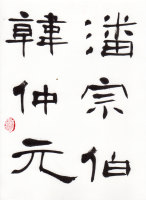 潘宗伯
韓仲元